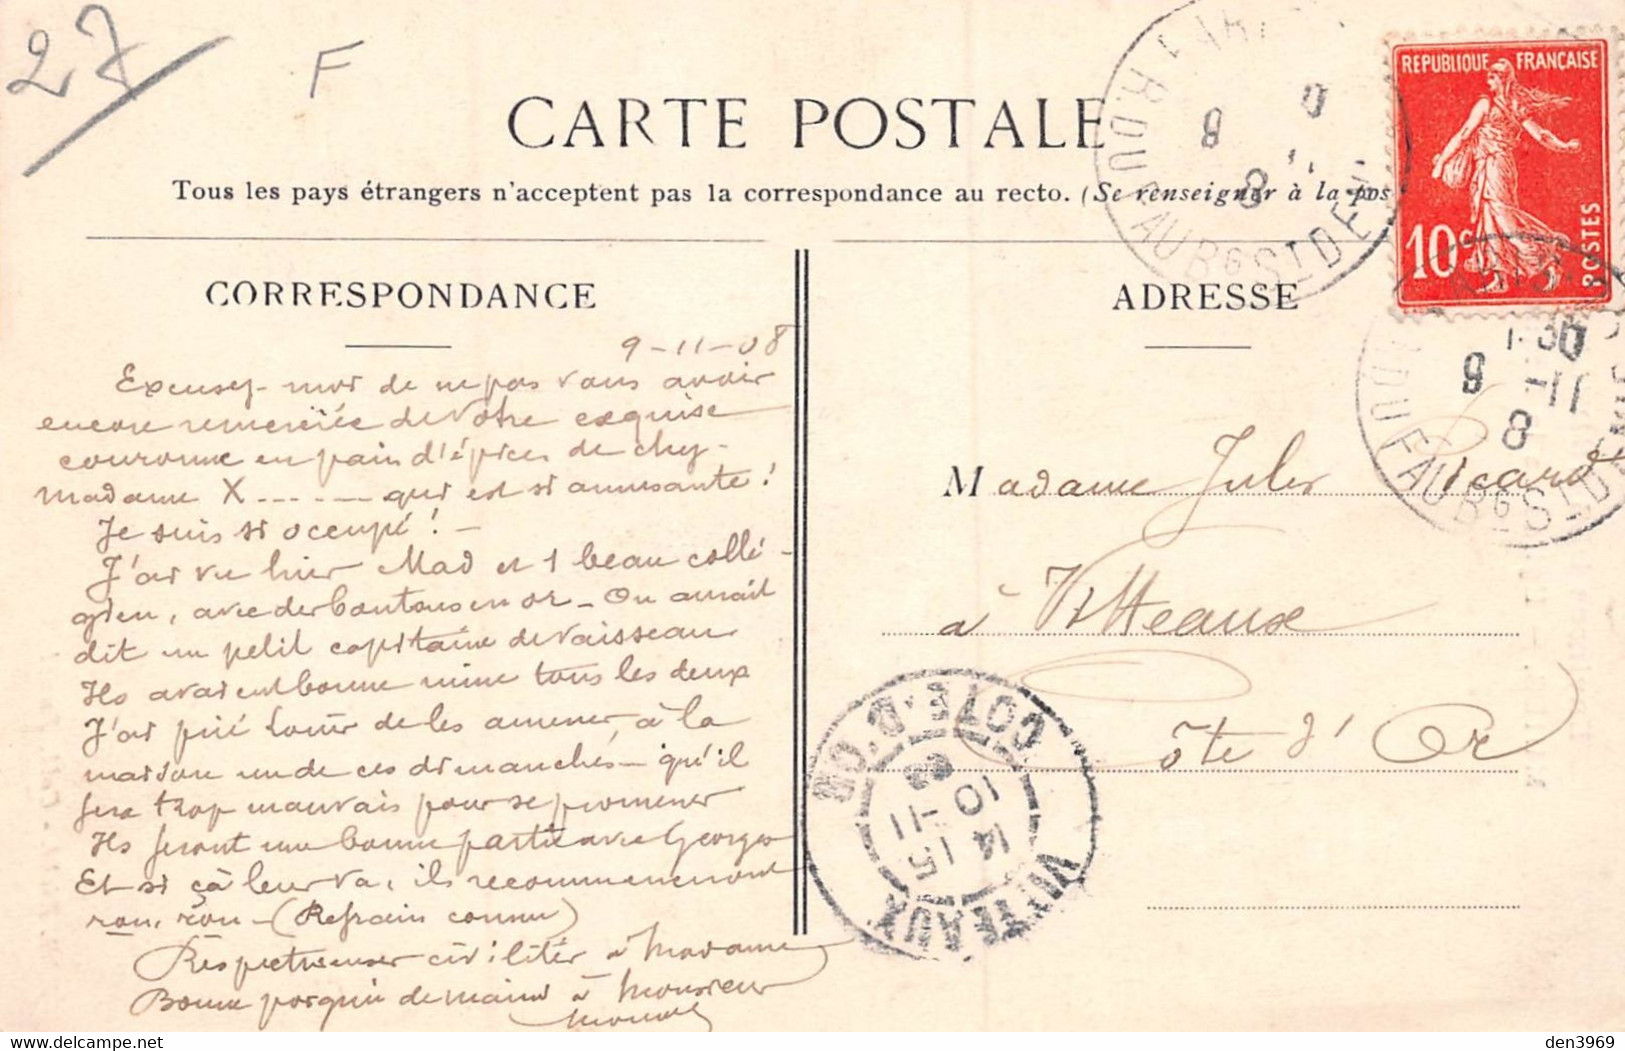 27
F
CARTE POSTALE
Tous les pays étrangers n'acceptent pas la correspondance au recto. (Se renseigner à la pos
REPUBLIQUE FRANÇAISE
10c
POSTES
R. DU FAUBG ST DENIS
8 11 8
PARIS
1 30
8 -11
8
R. DU FAUBG ST DENIS
CORRESPONDANCE
9-11-08
Excusez-moi de ne pas vous avoir
encore remerciée de votre exquise
couronne en pain d'épices de chez
madame X ------ qui est si amusante !
Je suis si occupé ! -
J'ai vu hier Mad et 1 beau collé-
gien, avec des boutons en or - On aurait
dit un petit capitaine de vaisseau
Ils avaient bonne mine tous les deux
J'ai prié Louise de les amener, à la
maison un de ces dimanches - qu'il
fera trop mauvais pour se promener
Ils feront une bonne partie avec Georges
Et si çà leur va, ils recommenceront
ron, ron - (Refrain connu)
Respectueuses civilités à Madame
Bonne poignée de mains à Monsieur
ADRESSE
Madame Jules Picard
à Vitteaux
Côte d'Or
VITTEAUX
COTE-D'OR
14 15
10 -11
08
den3969